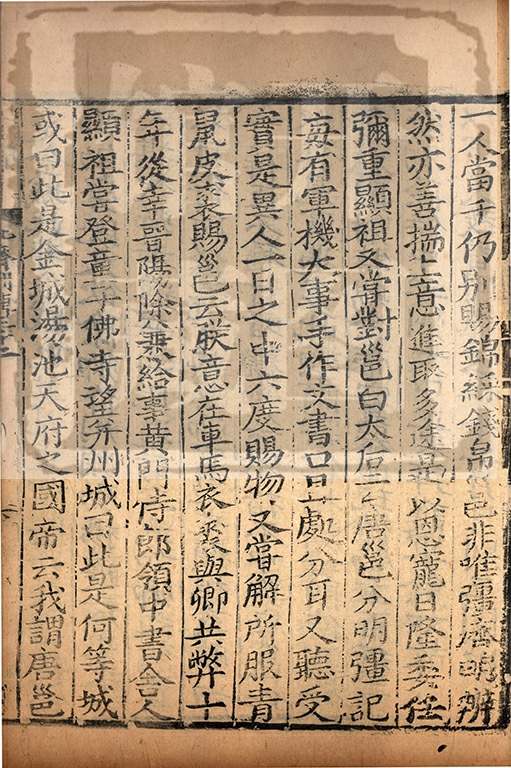 一人當千仍别賜錦綵錢帛邕非唯彊濟明辨
然亦善揣上意進取多途是以恩寵日隆委任
彌重顯祖又甞對邕白太后云唐邕分明彊記
每有軍機大事手作文書口且處分耳又聽受
實是異人一日之中六度賜物又嘗解所服青
鼠皮裘賜邕云朕意在車馬衣裘與卿共弊十
年從幸晉陽除兼給事黄門侍郎領中書舍人
顯祖嘗登童子佛寺望并州城曰此是何等城
或曰此是金城湯池天府之國帝云我謂唐邕